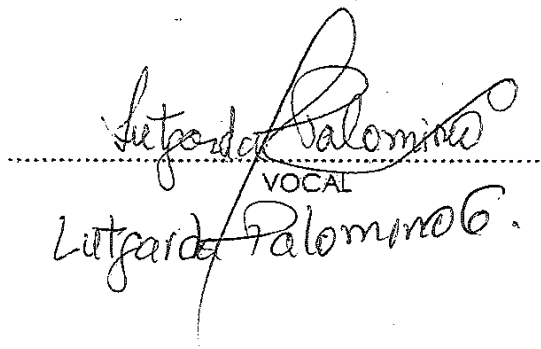 Lutgarda Palomino
VOCAL
Lutgarda Palomino G.